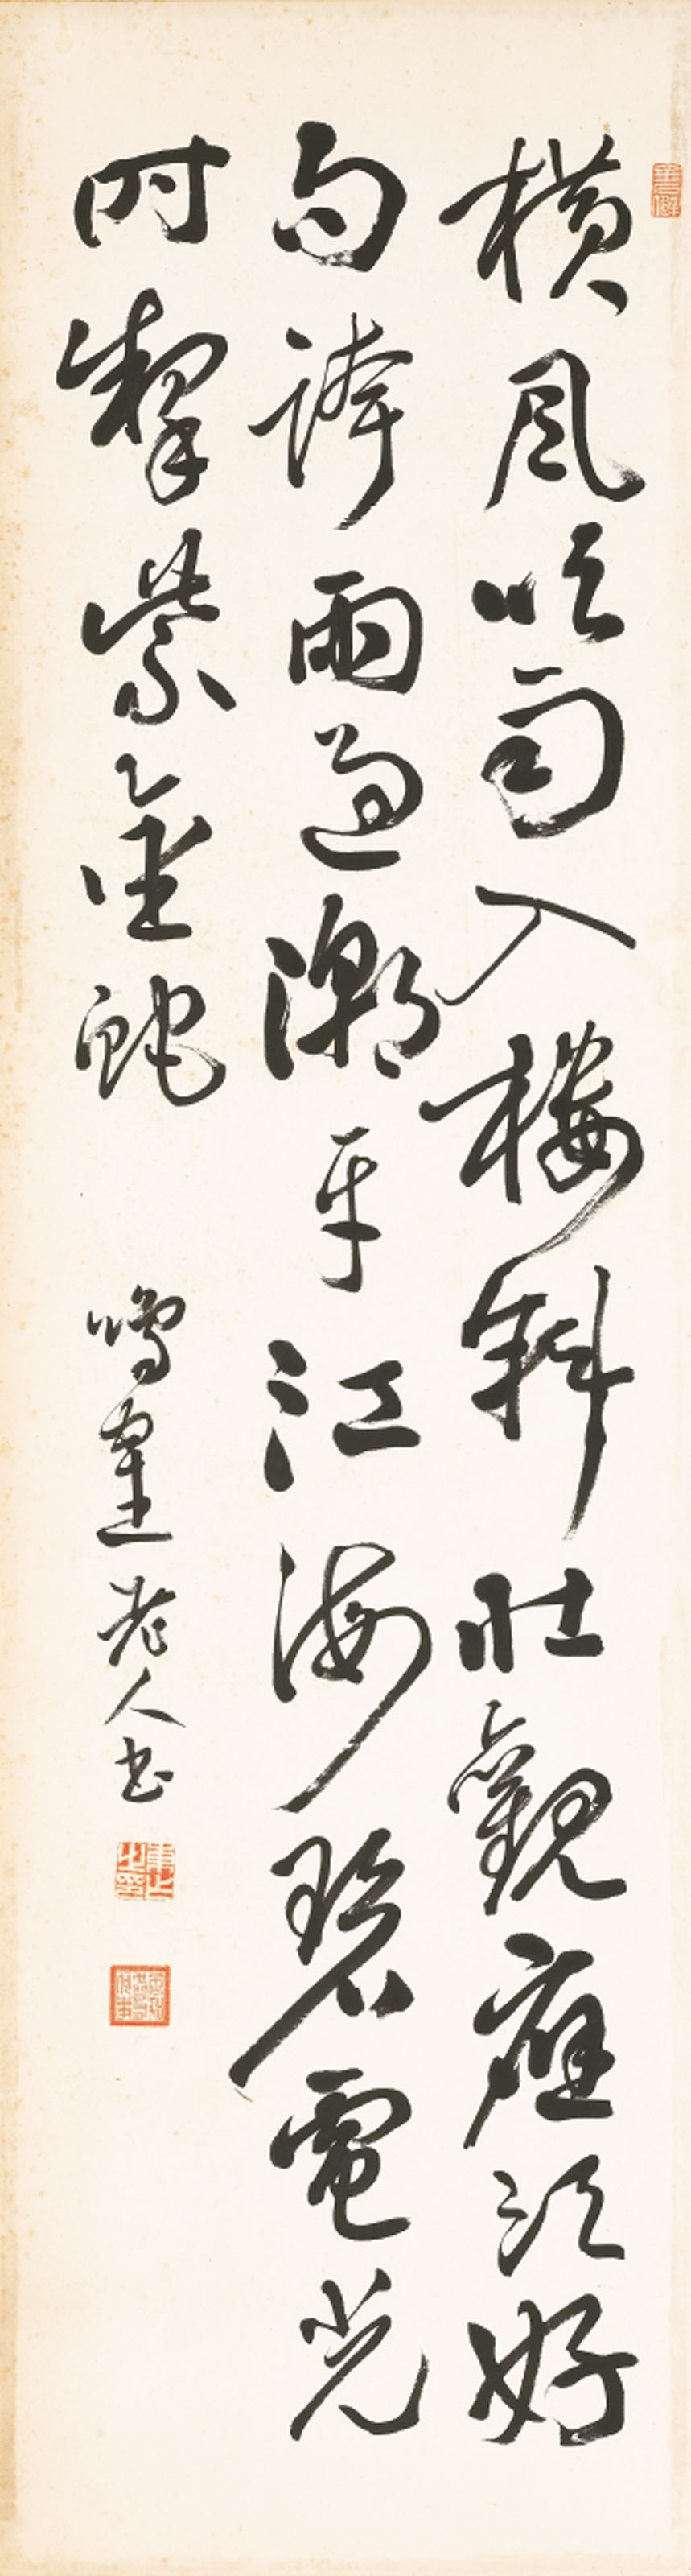 橫風吹雨入樓斜壯觀應須好
句誇雨過潮平江海碧電光
時掣紫金蛇
鳴寉老人書